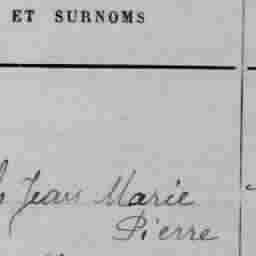 ET SURNOMS
Jean Marie
Pierre